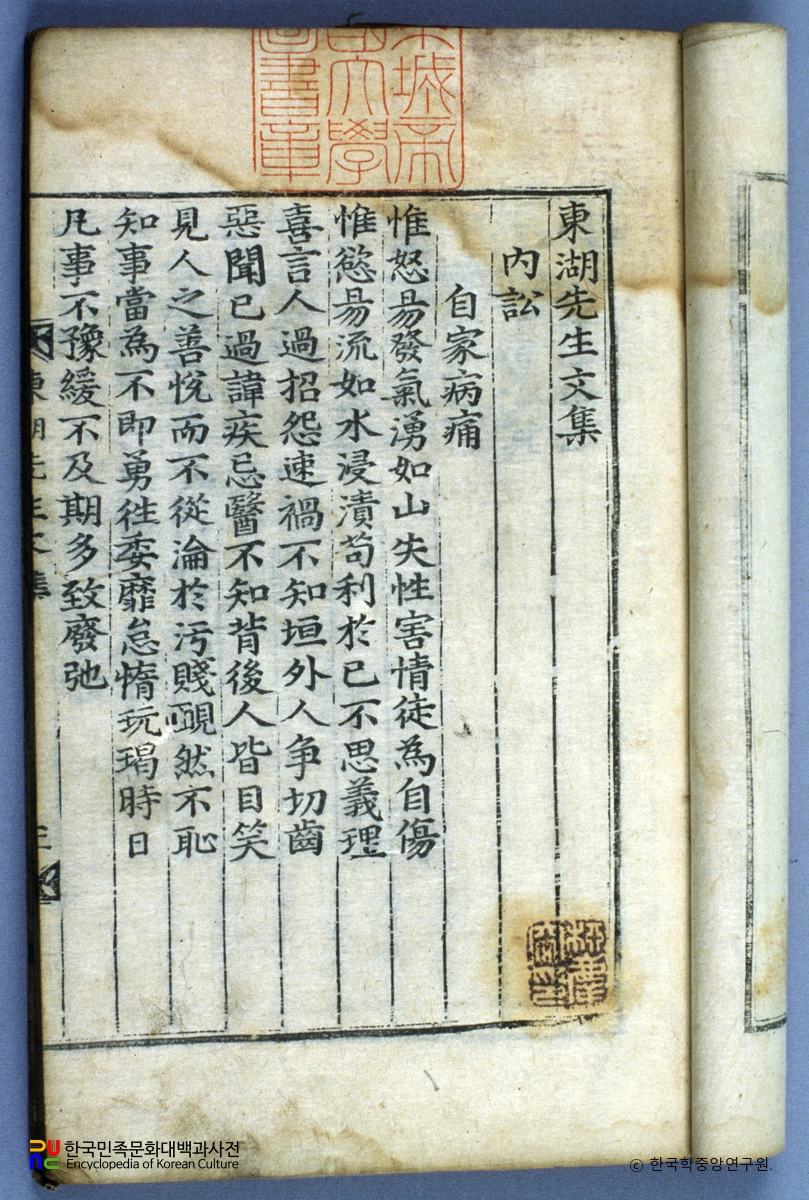 東湖先生文集
內訟
自家病痛
惟怒昜發氣湧如山失性害情徒為自傷
惟慾昜流如水浸漬苟利於已不思義理
喜言人過招怨速禍不知垣外人爭切齒
惡聞已過諱疾忌醫不知背後人皆目笑
見人之善悅而不從淪於汚賤靦然不恥
知事當為不即勇徃委靡怠惰玩愒時日
凡事不豫緩不及期多致廢弛
東湖先生文集
帝
學
書章
한국민족문화대백과사전
Encyclopedia of Korean Culture
© 한국학중앙연구원.